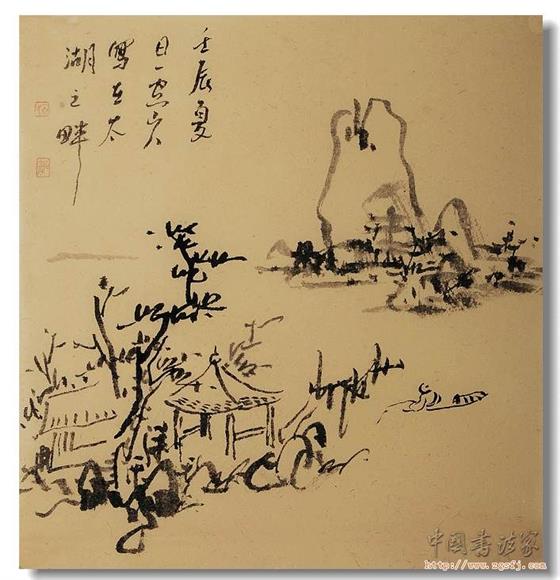 壬辰夏
日一空寅
写在太
湖之畔
中国书法家
http://www.zgsfj.com